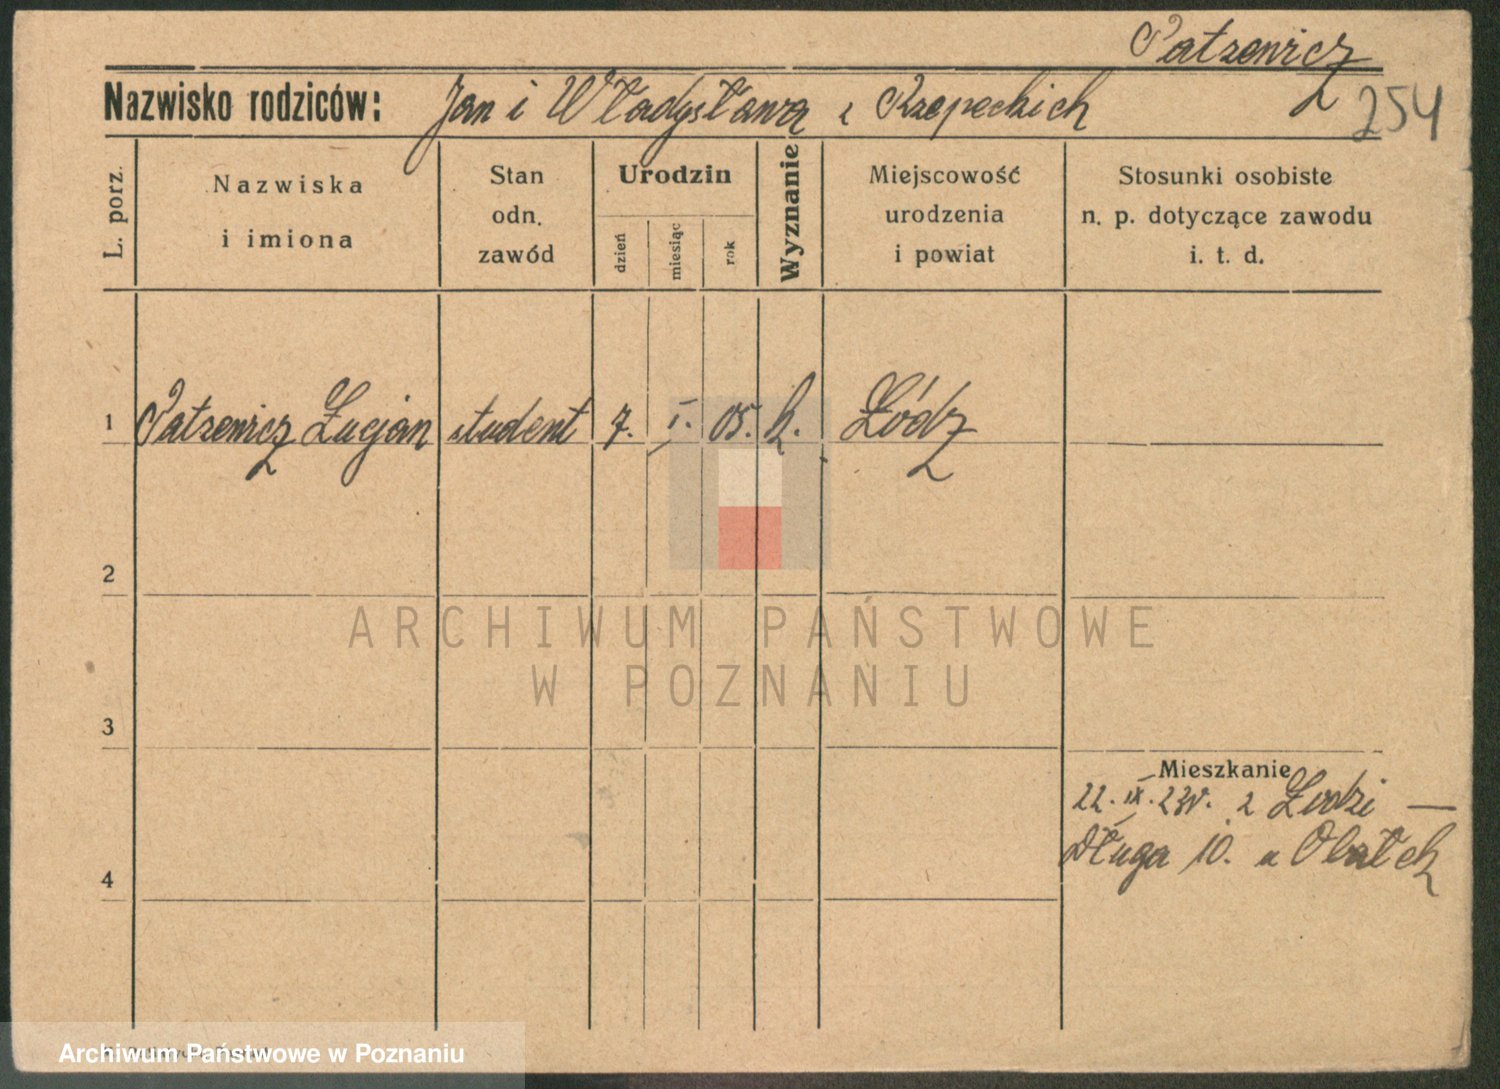 Patzewicz
Nazwisko rodziców: Jan i Władysława z Rzepeckich
254
L. porz.
Nazwiska
i imiona
Stan
odn.
zawód
Urodzin
dzień
miesiąc
rok
Wyznanie
Miejscowość
urodzenia
i powiat
Stosunki osobiste
n. p. dotyczące zawodu
i. t. d.
1 Patzewicz Łucjan student 7. I. 05. k. Łódz
2
ARCHIWUM PAŃSTWOWE
W POZNANIU
3
Mieszkanie
22. IX. 23r. z Łodzi —
Długa 10. u
4
Archiwum Państwowe w Poznaniu